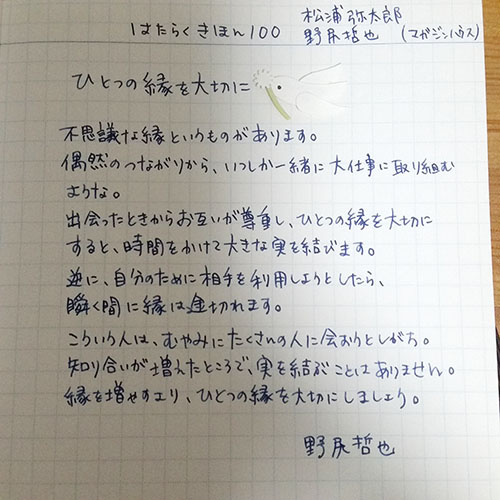 はたらくきほん100
松浦弥太郎
野尻哲也 (マガジンハウス)
ひとつの縁を大切に
不思議な縁というものがあります。
偶然のつながりから、いつしか一緒に大仕事に取り組む
ような。
出会ったときからお互いが尊重し、ひとつの縁を大切に
すると、時間をかけて大きな実を結びます。
逆に、自分のために相手を利用しようとしたら、
瞬く間に縁は途切れます。
こういう人は、むやみにたくさんの人に会おうとしがち。
知り合いが増えたところで、実を結ぶことはありません。
縁を増やすより、ひとつの縁を大切にしましょう。
野尻哲也